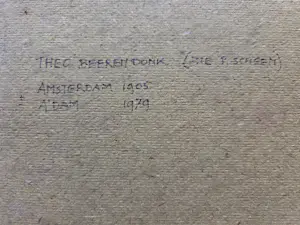 THEO BEERENDONK (ZIE P. SCHEEN)
AMSTERDAM 1905
A'DAM 1979